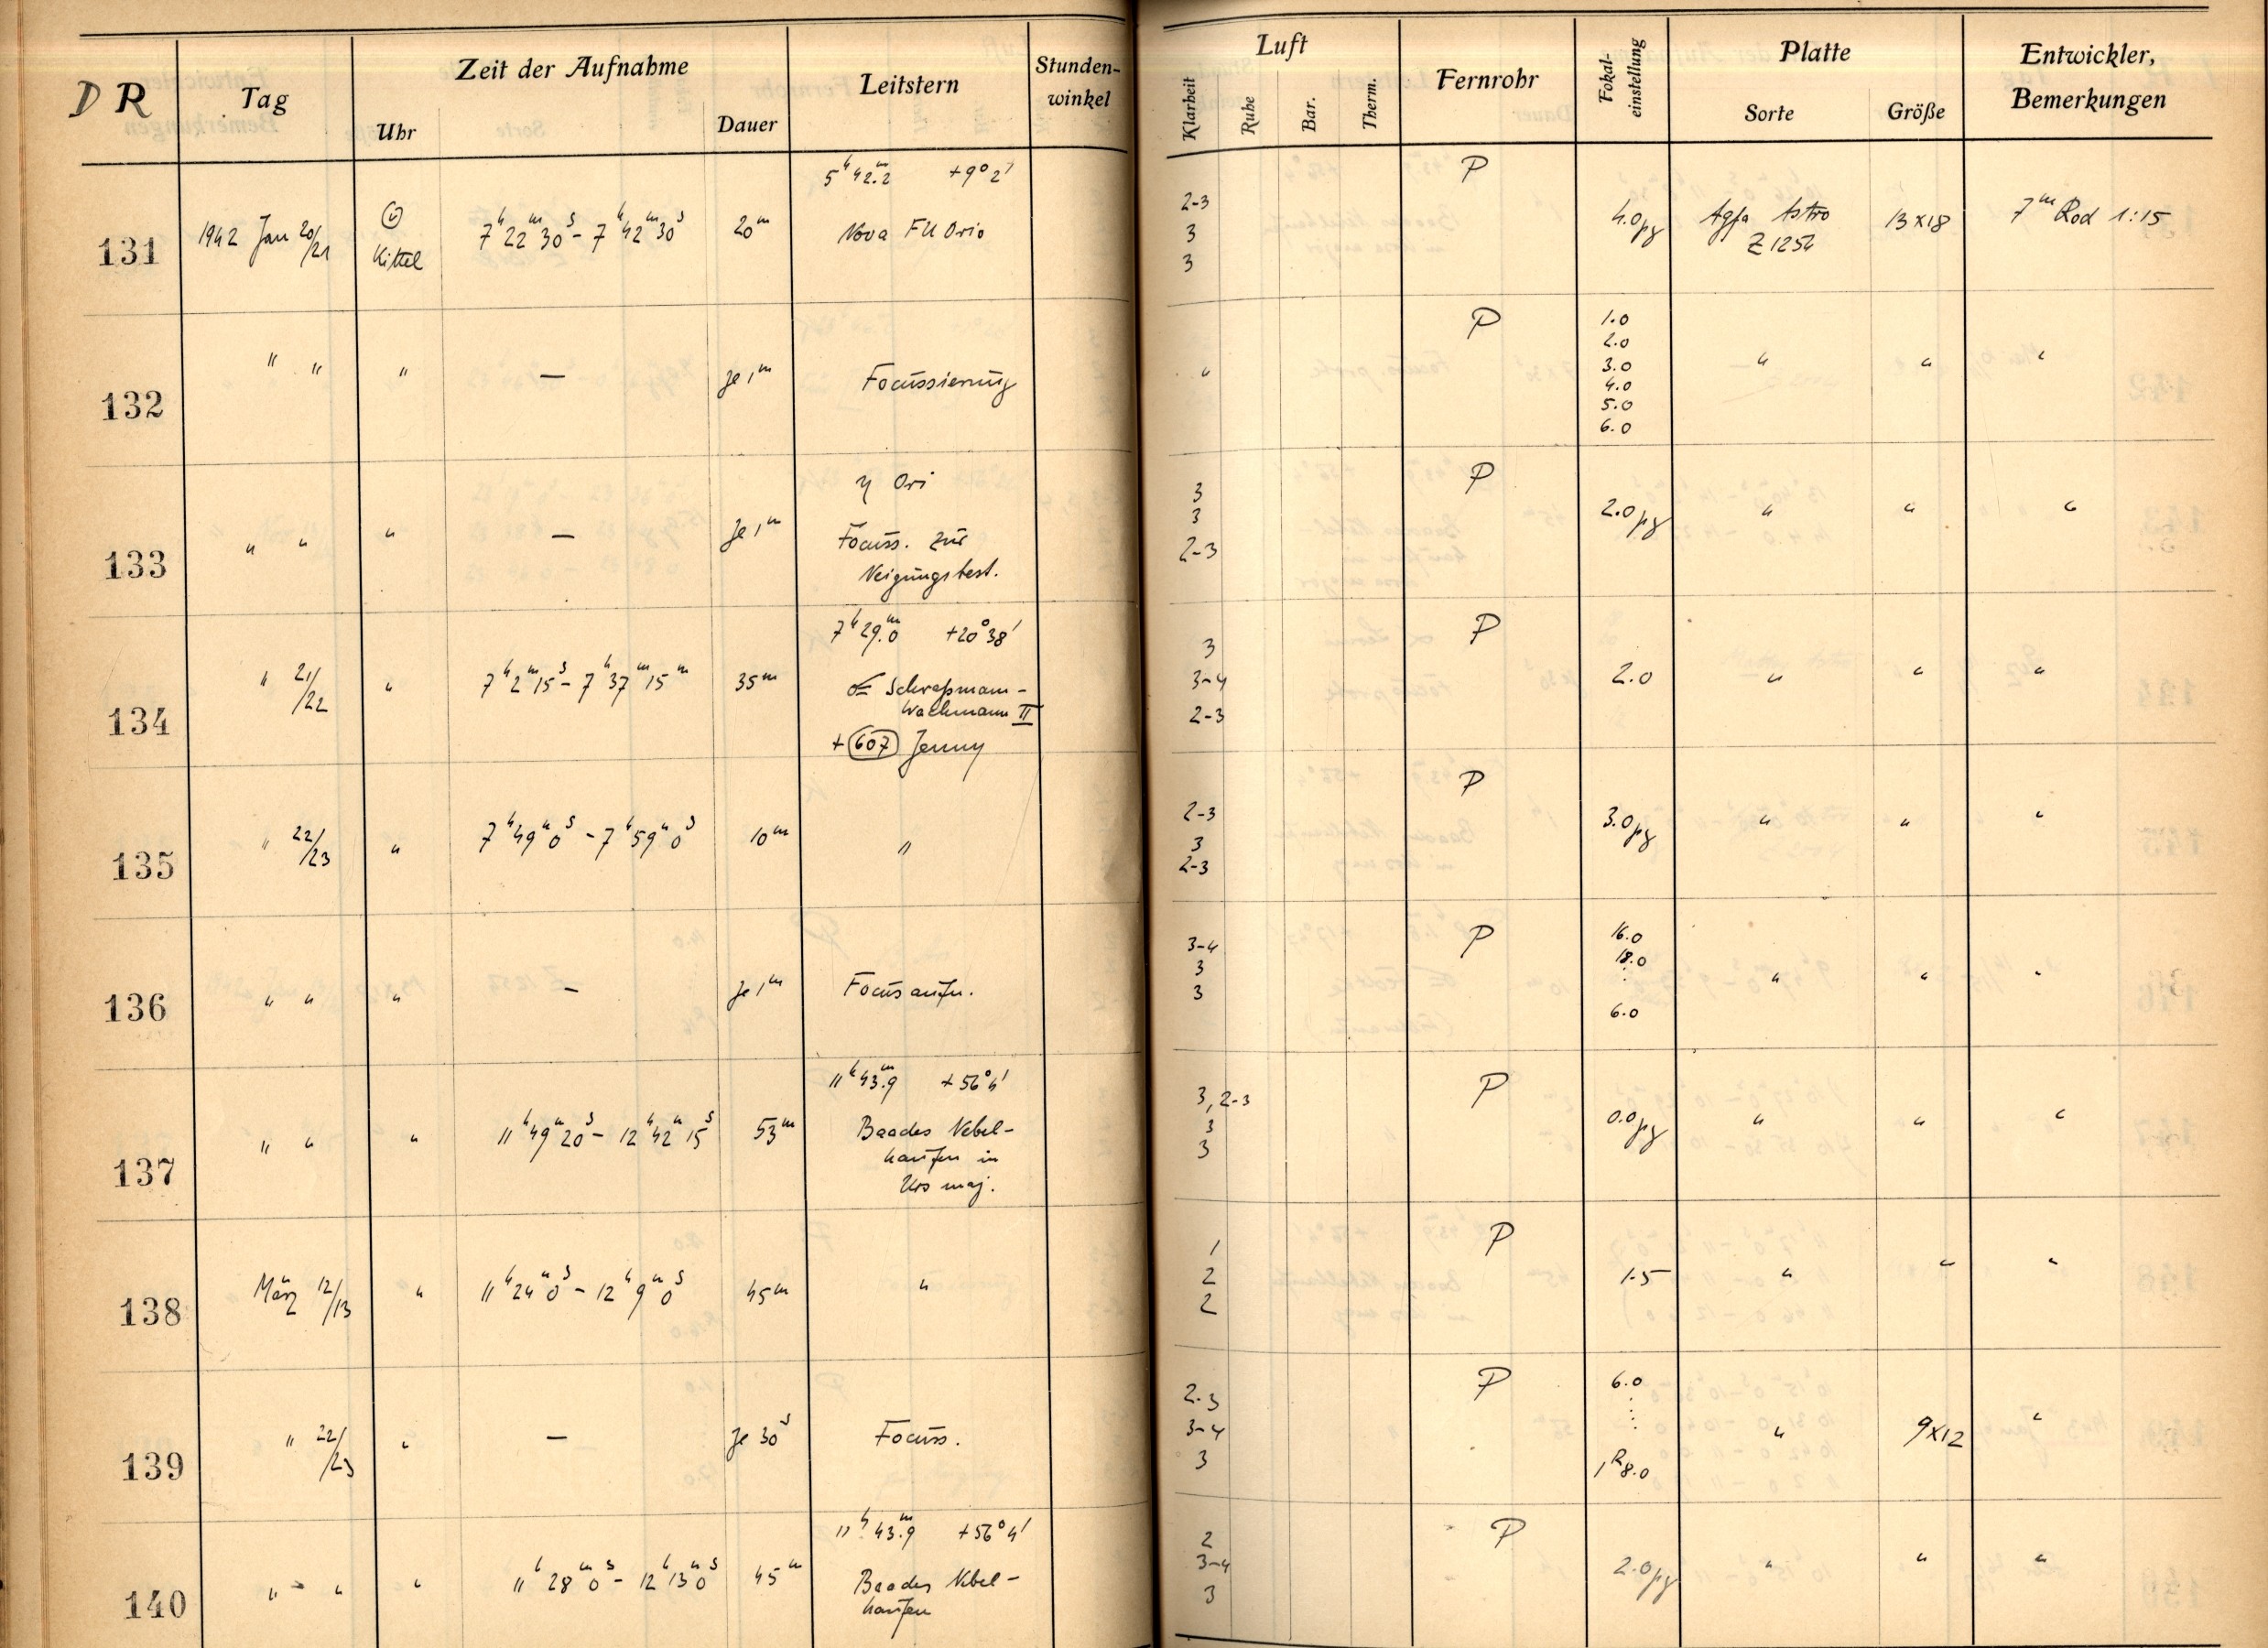 DR
Tag
Zeit der Aufnahme
Uhr
Dauer
Leitstern
Stunden-
winkel
Luft
Klarheit
Ruhe
Bar.
Therm.
Fernrohr
Fokal-
einstellung
Platte
Sorte
Größe
Entwickler,
Bemerkungen
131
1942 Jan 20/21
Kittel
7h 22m 30s - 7h 42m 30s
20m
5h 42.m2 +9° 2'
Nova FU Orio
2-3
3
3
P
4.0 pg
Agfa Astro
Z 1254
13 x 18
7m Rod 1:15
132
" "
"
—
Je 1m
Focussierung
"
P
1.0
2.0
3.0
4.0
5.0
6.0
"
"
"
133
" "
"
—
Je 1m
η Ori
Focuss. zur
Neigungsbest.
3
3
2-3
P
2.0 pg
"
"
"
134
" 21/22
"
7h 2m 15s - 7h 37m 15m
35m
7h 29.m0 +20° 38'
Schwaßmann-
Wachmann II
+ (607) Jenny
3
3-4
2-3
P
2.0
"
"
"
135
" 22/23
"
7h 49m 0s - 7h 59m 0s
10m
"
2-3
3
2-3
P
3.0 pg
"
"
"
136
" "
"
—
Je 1m
Focusaufn.
3-4
3
3
P
16.0
18.0
:
6.0
"
"
"
137
" "
"
11h 49m 20s - 12h 42m 15s
53m
11h 43.m9 +56° 4'
Baades Nebel-
haufen in
Urs maj.
3, 2-3
3
3
P
0.0 pg
"
"
"
138
März 12/13
"
11h 24m 0s - 12h 9m 0s
45m
"
1
2
2
P
1.5
"
"
"
139
" 22/23
"
—
Je 30s
Focuss.
2-3
3-4
3
P
6.0
⋮
1R 8.0
"
9x12
"
140
" "
"
11h 28m 0s - 12h 13m 0s
45m
11h 43.m9 +56° 4'
Baades Nebel-
haufen
2
3-4
3
P
2.0 pg
"
"
"